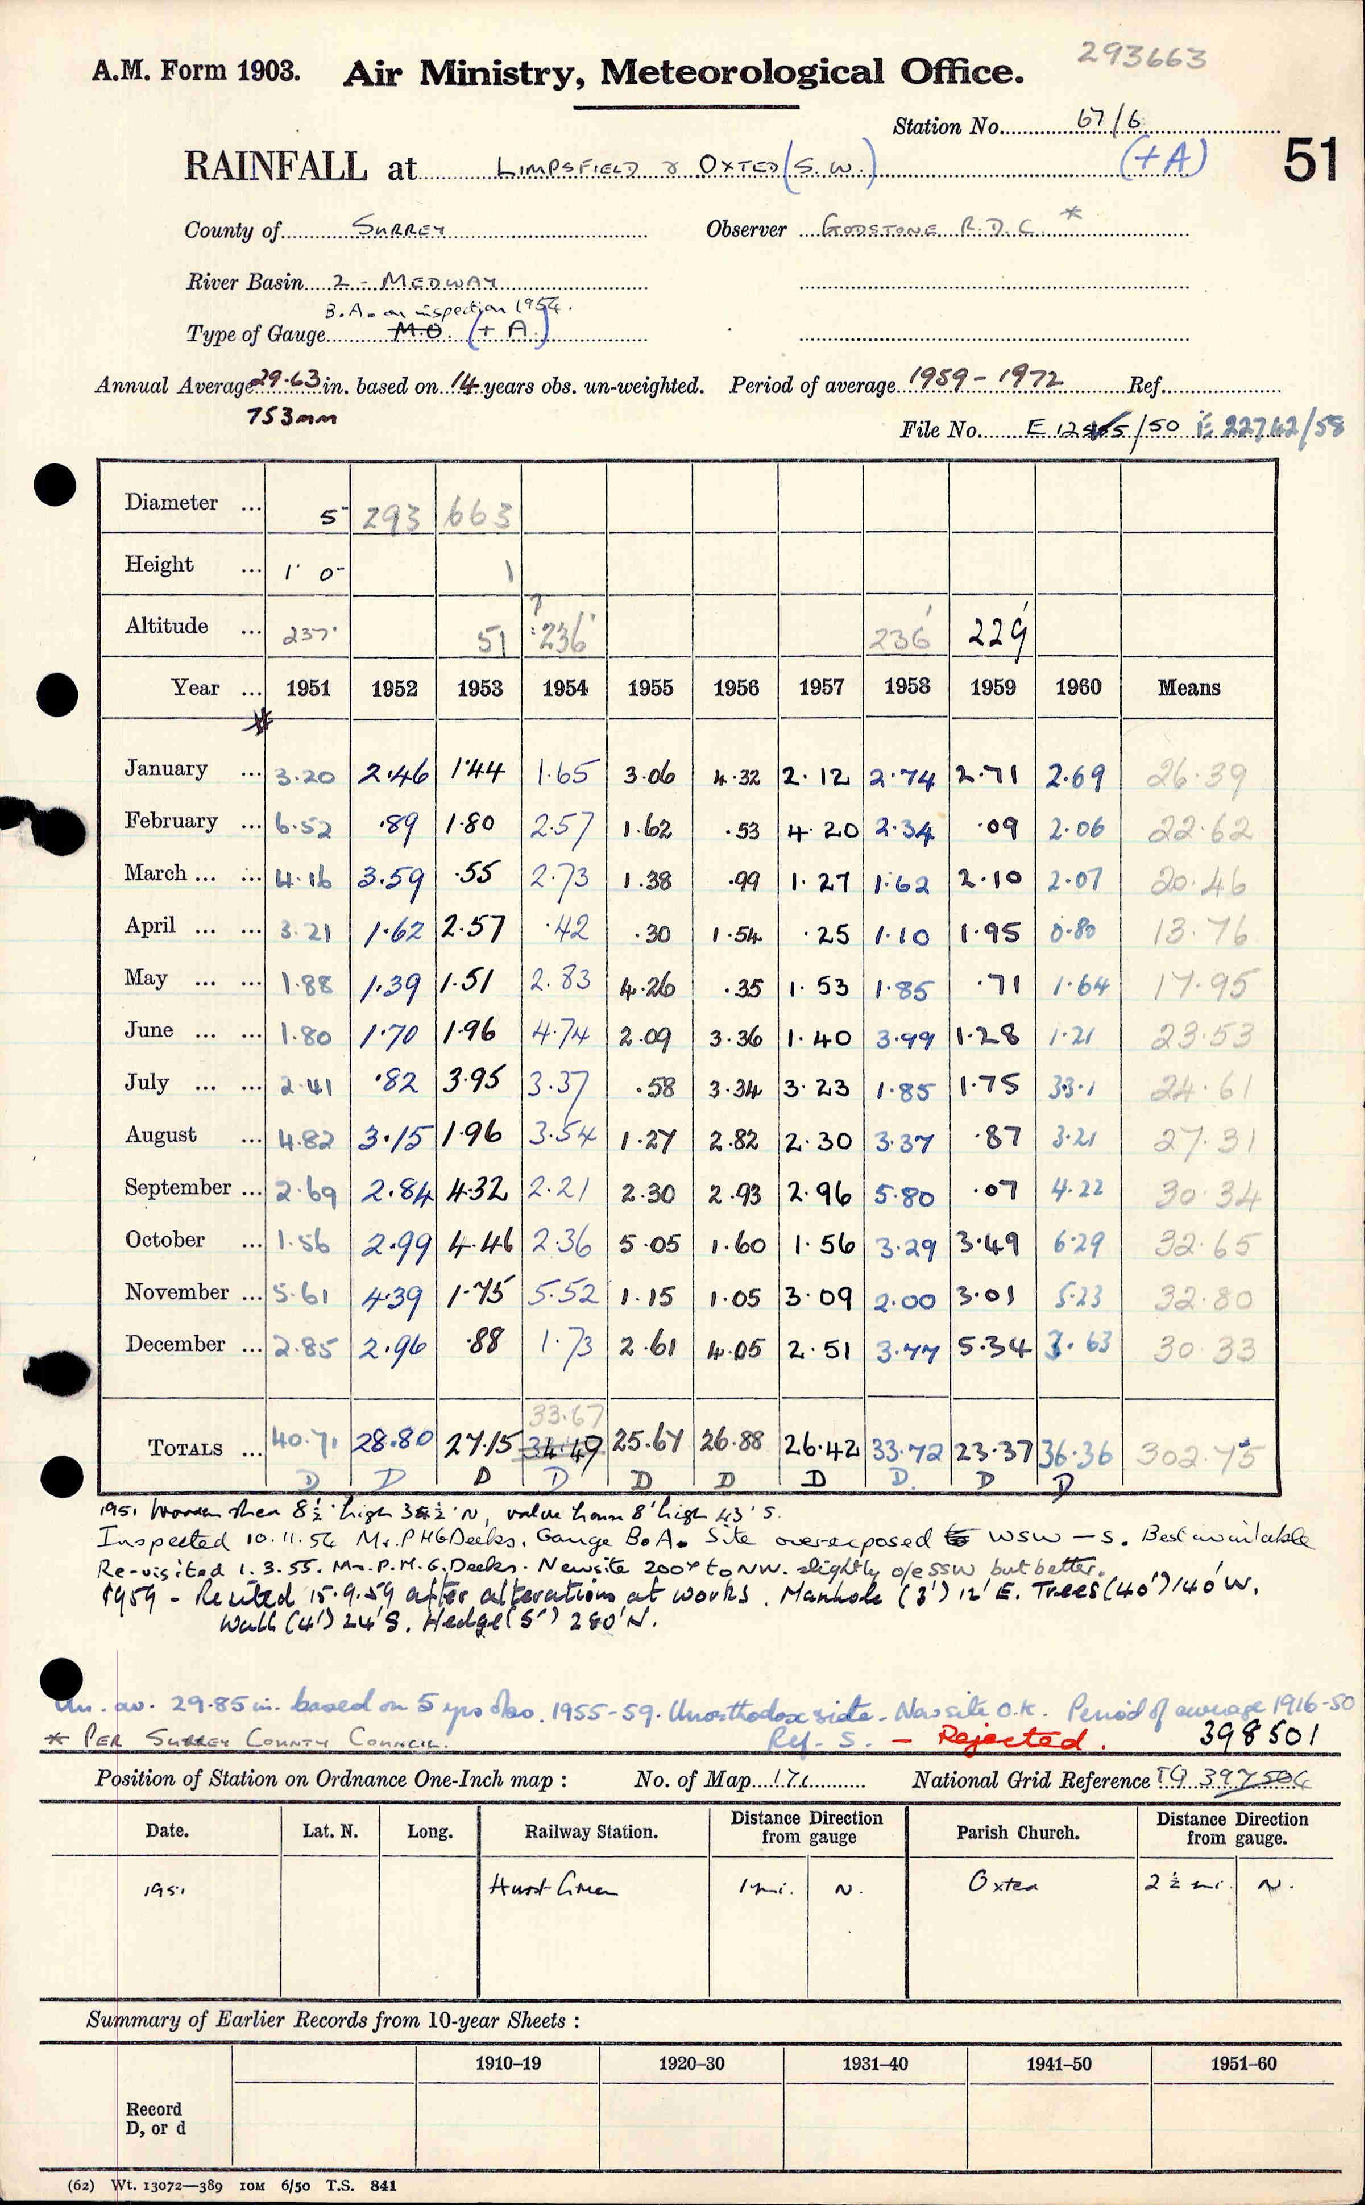 293663
A.M. Form 1903. Air Ministry, Meteorological Office.
Station No. 67/6
RAINFALL at LIMPSFIELD & OXTED (S.W.) (+A) 51
County of SURREY Observer GODSTONE R.D.C. *
River Basin 2 - MEDWAY
B.A. on inspection 1954.
Type of Gauge M.O. (+ A)
Annual Average 29.63 in. based on 14 years obs. un-weighted. Period of average 1959-1972 Ref.
753mm
File No. E 12455/50 E 22762/58
Diameter ... 5" 293 663
Height ... 1' 0" 1
Altitude ... 237' 51 ? 236' 236' 229'
Year ... 1951 1952 1953 1954 1955 1956 1957 1958 1959 1960 Means
January ... 3.20 2.46 1.44 1.65 3.06 4.32 2.12 2.74 2.71 2.69 26.39
February ... 6.52 .89 1.80 2.57 1.62 .53 4.20 2.34 .09 2.06 22.62
March ... ... 4.16 3.59 .55 2.73 1.38 .99 1.27 1.62 2.10 2.07 20.46
April ... ... 3.21 1.62 2.57 .42 .30 1.54 .25 1.10 1.95 0.80 13.76
May ... ... 1.88 1.39 1.51 2.83 4.26 .35 1.53 1.85 .71 1.64 17.95
June ... ... 1.80 1.70 1.96 4.74 2.09 3.36 1.40 3.99 1.28 1.21 23.53
July ... ... 2.41 .82 3.95 3.37 .58 3.34 3.23 1.85 1.75 33.1 24.61
August ... 4.82 3.15 1.96 3.54 1.27 2.82 2.30 3.37 .87 3.21 27.31
September ... 2.69 2.84 4.32 2.21 2.30 2.93 2.96 5.80 .07 4.22 30.34
October ... 1.56 2.99 4.46 2.36 5.05 1.60 1.56 3.29 3.49 6.29 32.65
November ... 5.61 4.39 1.75 5.52 1.15 1.05 3.09 2.00 3.01 5.23 32.80
December ... 2.85 2.96 .88 1.73 2.61 4.05 2.51 3.77 5.34 3.63 30.33
33.67
TOTALS ... 40.71 28.80 27.15 34.49 25.67 26.88 26.42 33.72 23.37 36.36 302.75
D D D D D D D D D D
1951 Wooden shed 8½' high 35½' N, valve house 8' high 43' S.
Inspected 10.11.54 Mr. P.H.G Deeks. Gauge B.A. Site overexposed to WSW - S. Best available
Re-visited 1.3.55. Mr. P.H.G. Deeks. New site 200y to NW. slightly o/e SSW but better.
1959 - Re sited 15.9.59 after alterations at works. Manhole (3') 12' E. Trees (40') 140' W.
Wall (4') 24' S. Hedge (5') 280' N.
Un. av. 29.85 in. based on 5 yrs obs. 1955-59. Unorthodox site. New site O.K. Period of average 1916-50
* PER SURREY COUNTY COUNCIL. Ref. S. - Rejected. 398501
Position of Station on Ordnance One-Inch map : No. of Map 171 National Grid Reference TQ 397506
Date. Lat. N. Long. Railway Station. Distance Direction from gauge Parish Church. Distance Direction from gauge.
1951 Hurst Green 1 mi. N. Oxted 2½ mi. N.
Summary of Earlier Records from 10-year Sheets :
1910–19 1920–30 1931–40 1941–50 1951–60
Record
D, or d
(62) Wt. 13072—389 10M 6/50 T.S. 841